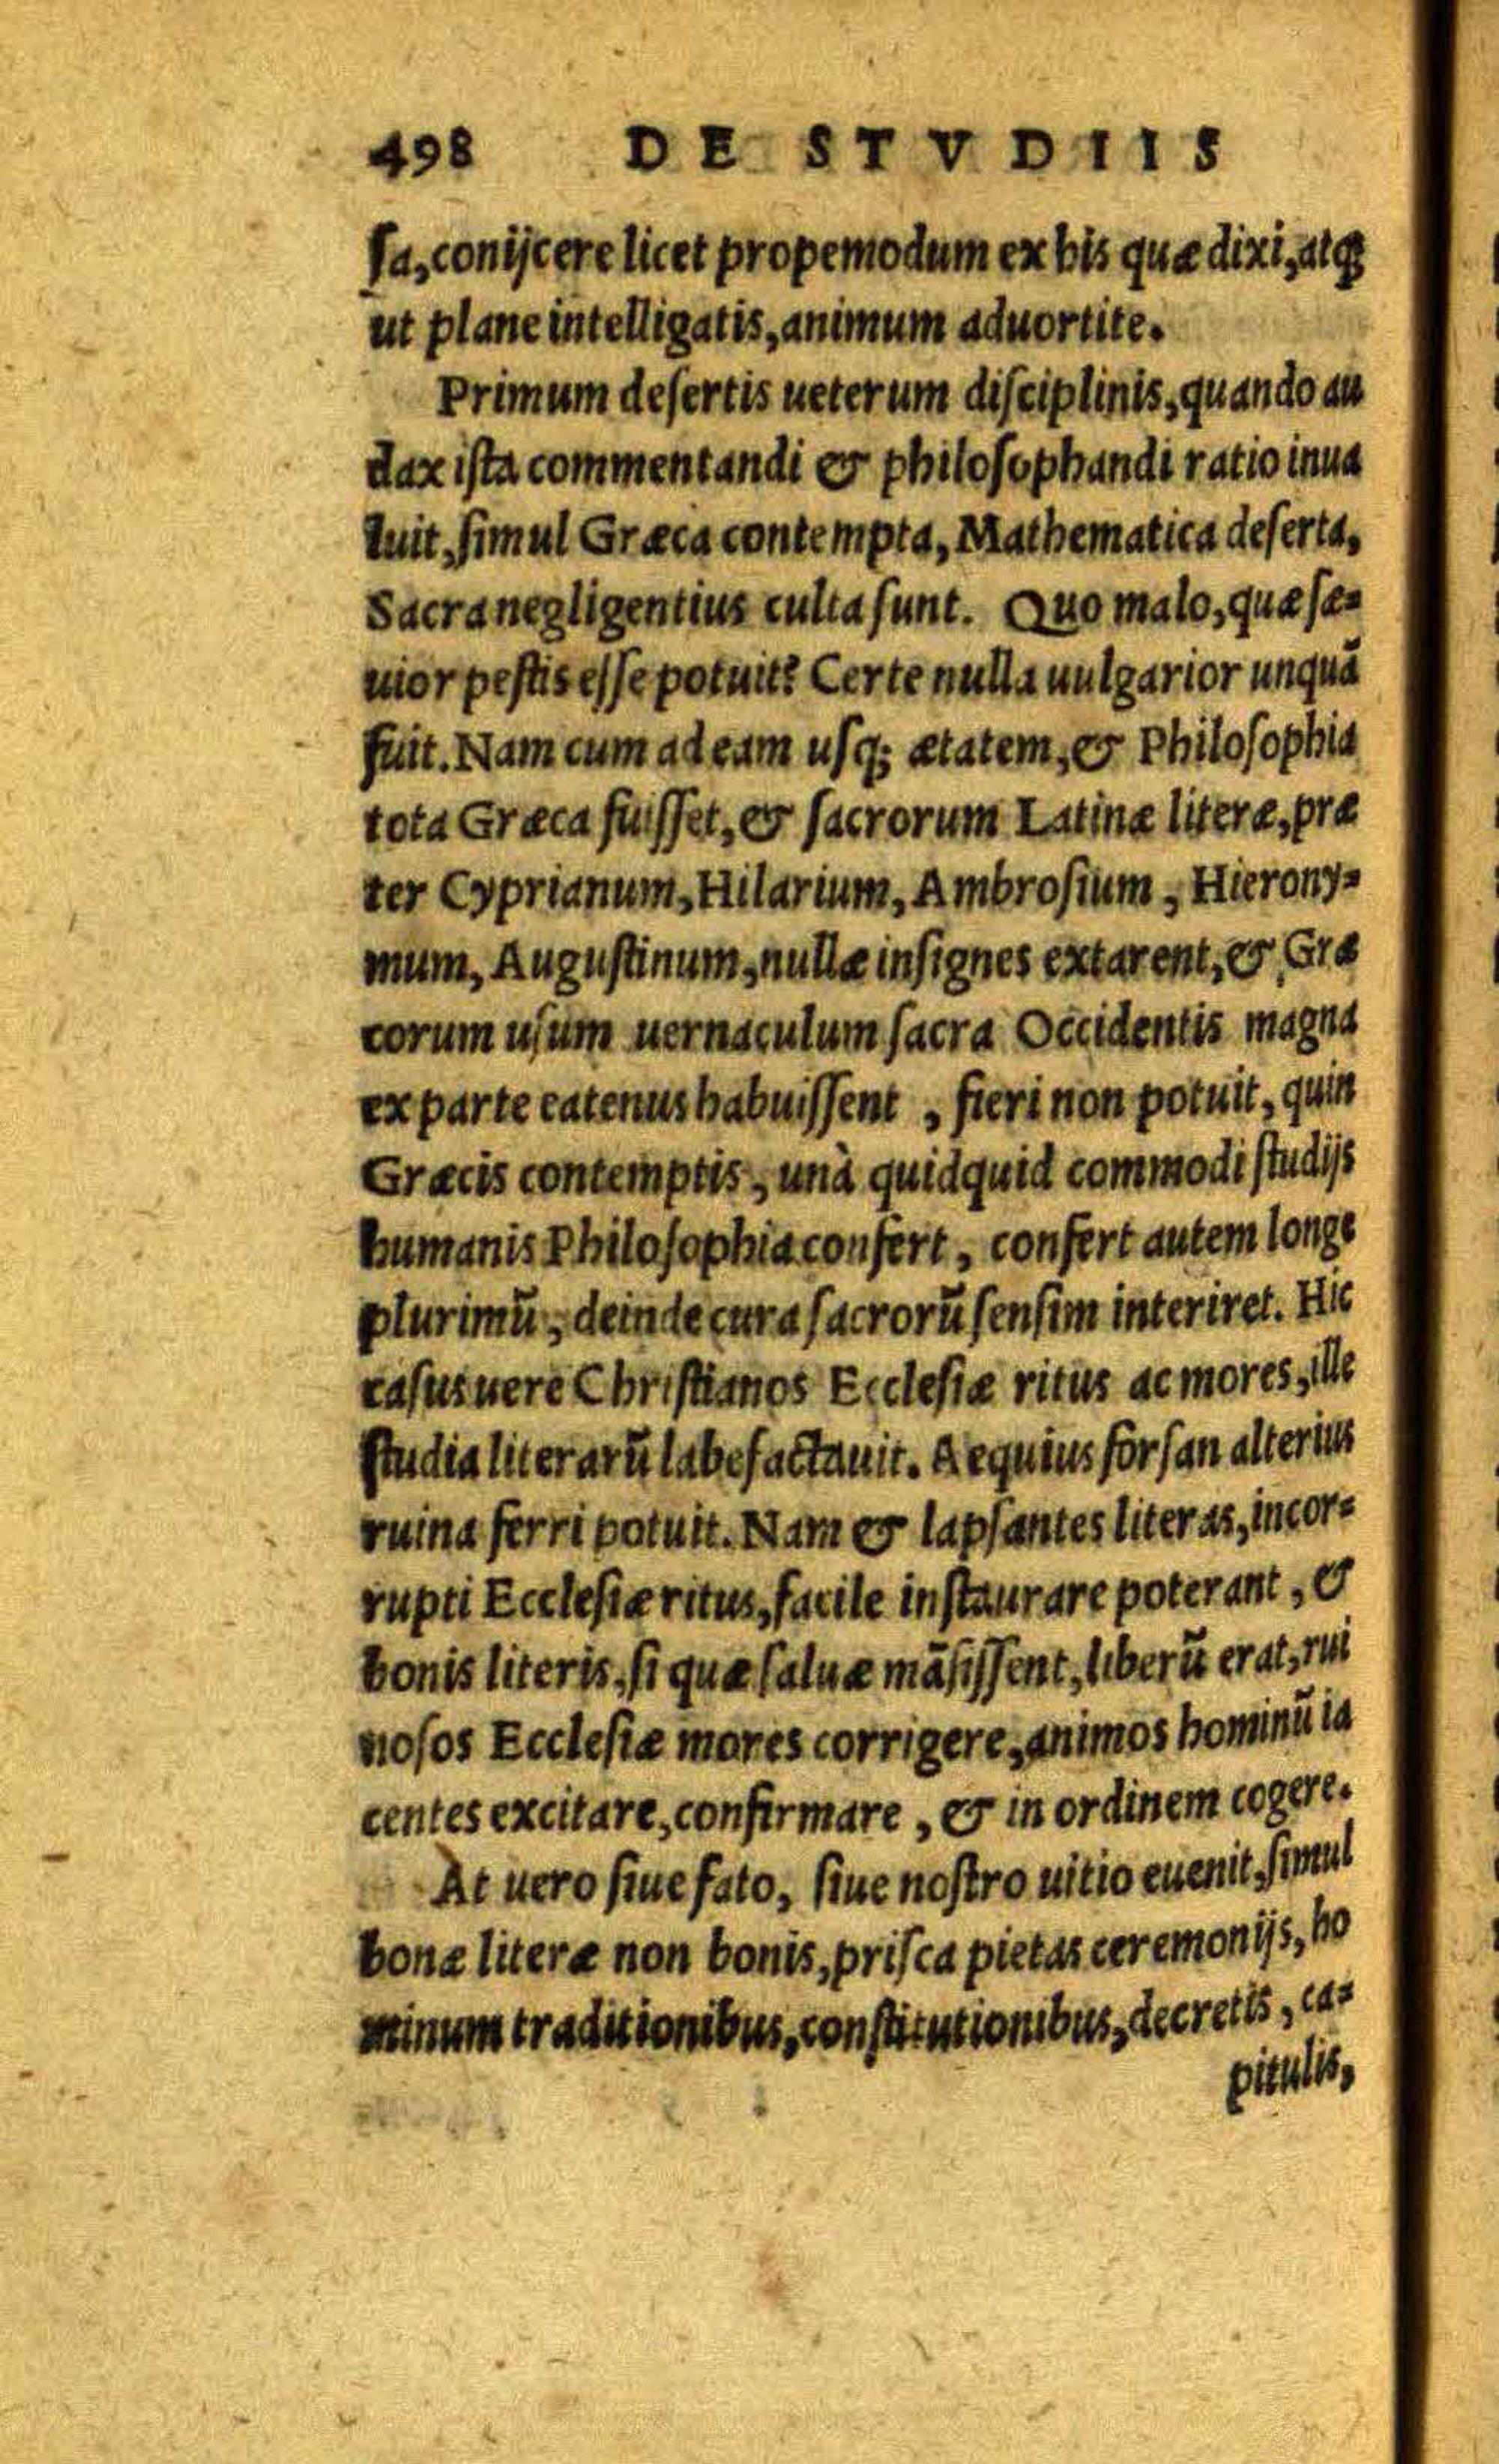 498 DE STVDIIS
ſa, conijcere licet propemodum ex his quæ dixi, atq́;
ut plane intelligatis, animum aduortite.
Primum deſertis ueterum diſciplinis, quando au
dax iſta commentandi & philoſophandi ratio inua
luit, ſimul Græca contempta, Mathematica deſerta,
Sacra negligentius culta ſunt. Quo malo, quæ ſæ-
uior peſtis eſſe potuit? Certe nulla uulgarior unquā
fuit. Nam cum ad eam uſq; ætatem, & Philoſophia
tota Græca fuiſſet, & ſacrorum Latinæ literæ, præ
ter Cyprianum, Hilarium, Ambroſium, Hierony-
mum, Auguſtinum, nullæ inſignes extarent, & Græ
corum uſum uernaculum ſacra Occidentis magna
ex parte eatenus habuiſſent, fieri non potuit, quin
Græcis contemptis, unà quidquid commodi ſtudijs
humanis Philoſophia confert, confert autem longe
plurimū, deinde cura ſacrorū ſenſim interiret. Hic
caſus uere Chriſtianos Eccleſiæ ritus ac mores, ille
ſtudia literarū labefactauit. Aequius forſan alterius
ruina ferri potuit. Nam & lapſantes literas, incor-
rupti Eccleſiæ ritus, facile inſtaurare poterant, &
bonis literis, ſi quæ ſaluæ māſiſſent, liberū erat, rui
noſos Eccleſiæ mores corrigere, animos hominū ia
centes excitare, confirmare, & in ordinem cogere.
At uero ſiue fato, ſiue noſtro uitio euenit, ſimul
bonæ literæ non bonis, priſca pietas ceremonijs, ho
minum traditionibus, conſtitutionibus, decretis, ca-
pitulis,